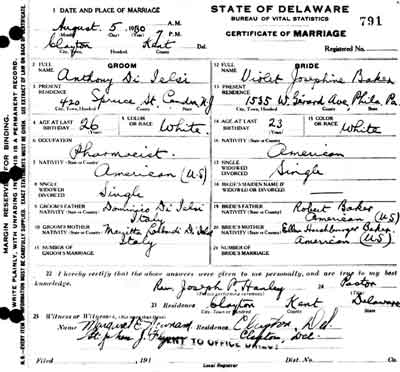 1 DATE AND PLACE OF MARRIAGE
STATE OF DELAWARE
BUREAU OF VITAL STATISTICS
CERTIFICATE OF MARRIAGE
791
Registered No.
August 5 1930 7 A.M. P.M.
Clayton Kent Del
GROOM
BRIDE
2 FULL NAME Anthony Di
12 FULL NAME Violet Josephine Baker
3 PRESENT RESIDENCE 420 Spruce St. Camden NJ
13 PRESENT RESIDENCE 1535 W. Girard Ave, Phila Pa.
4 AGE AT LAST BIRTHDAY 26
5 COLOR OR RACE White
14 AGE AT LAST BIRTHDAY 23
15 COLOR OR RACE White
6 OCCUPATION Pharmacist
7 NATIVITY (State or Country) American (U.S)
16 NATIVITY (State or Country) American
8 SINGLE WIDOWED DIVORCED Single
17 SINGLE WIDOWED DIVORCED Single
18 BRIDE'S MAIDEN NAME IF WIDOWED OR DIVORCED
9 GROOM'S FATHER NATIVITY (State or County) Italy
19 BRIDE'S FATHER NATIVITY (State or County) Robert Baker American (U.S)
10 GROOM'S MOTHER NATIVITY (State or County) Italy
20 BRIDE'S MOTHER NATIVITY (State or County) Ellen Baker American (U.S.)
11 NUMBER OF GROOM'S MARRIAGE
21 NUMBER OF BRIDE'S MARRIAGE
22 I hereby certify that the above answers were given to me personally, and are true to my best
knowledge. Rev. Joseph P. Hanley 24 Pastor
23 Residence Clayton Kent Delaware
25 Witness or Witnesses
Name Margaret E. Residence Clayton, Del.
Stephen J. Clayton, Del.
SENT TO OFFICE
Filed 191 Dist. No. Co.
Local Registrar
MARGIN RESERVED FOR BINDING.
WRITE PLAINLY, WITH UNFADING INK—THIS IS A PERMANENT RECORD.